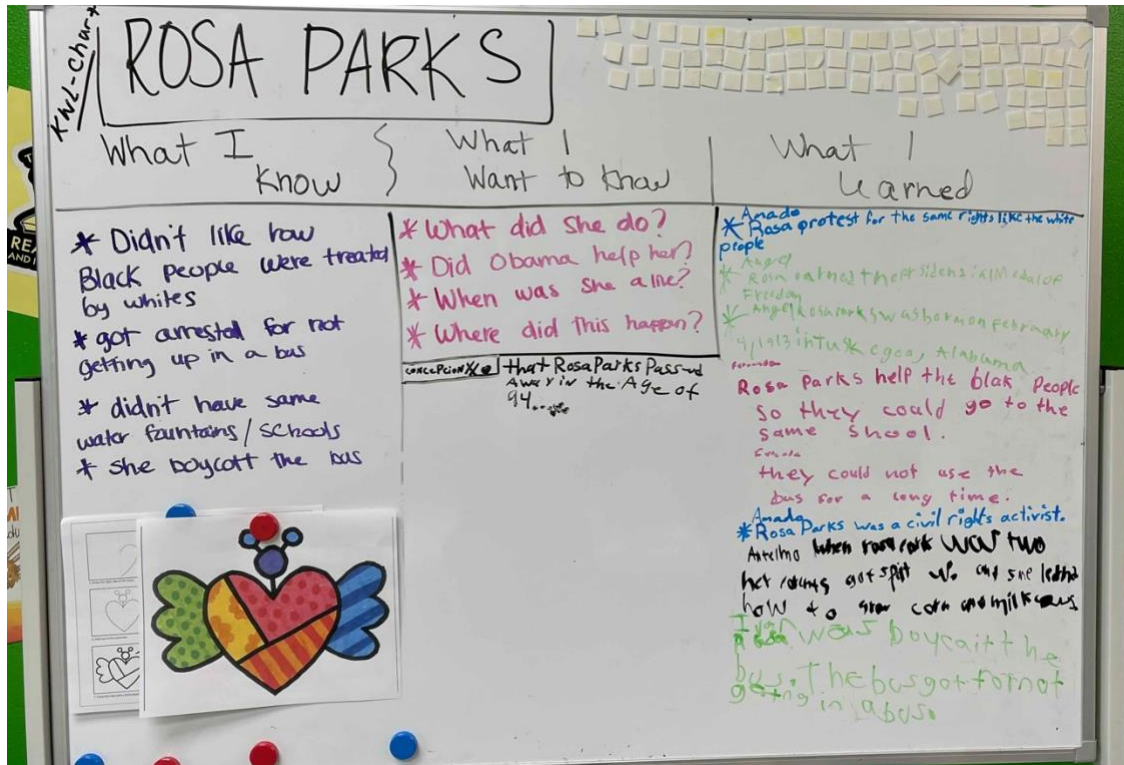 KWL-Chart
ROSA PARKS
What I
Know
What I
Want to Know
What I
Learned
* Didn't like how
Black people were treated
by whites
* got arrested for not
getting up in a bus
* didn't have same
water fountains/schools
* she boycott the bus
* What did she do?
* Did Obama help her?
* When was she alive?
* Where did this happen?
CONCEPCION
that Rosa Parks Passed
Away in the Age of
94....
Amado
* Rosa protest for the same rights like the white
people
Angel
* Rosa earned the Medal of
Freedom
* Angel Rosa Parks was born on February
4/1913 in Alabama
Rosa Parks help the blak People
so they could go to the
same Shool.
they could not use the
bus for a long time.
Amado
* Rosa Parks was a civil rights activist.
Antelmo When rosa park was two
her got split up and she
how to corn and milk cows
Ivan
Rosa was boycaitt the
bus. The bus got fornot
getting in a bus.
REA
AND